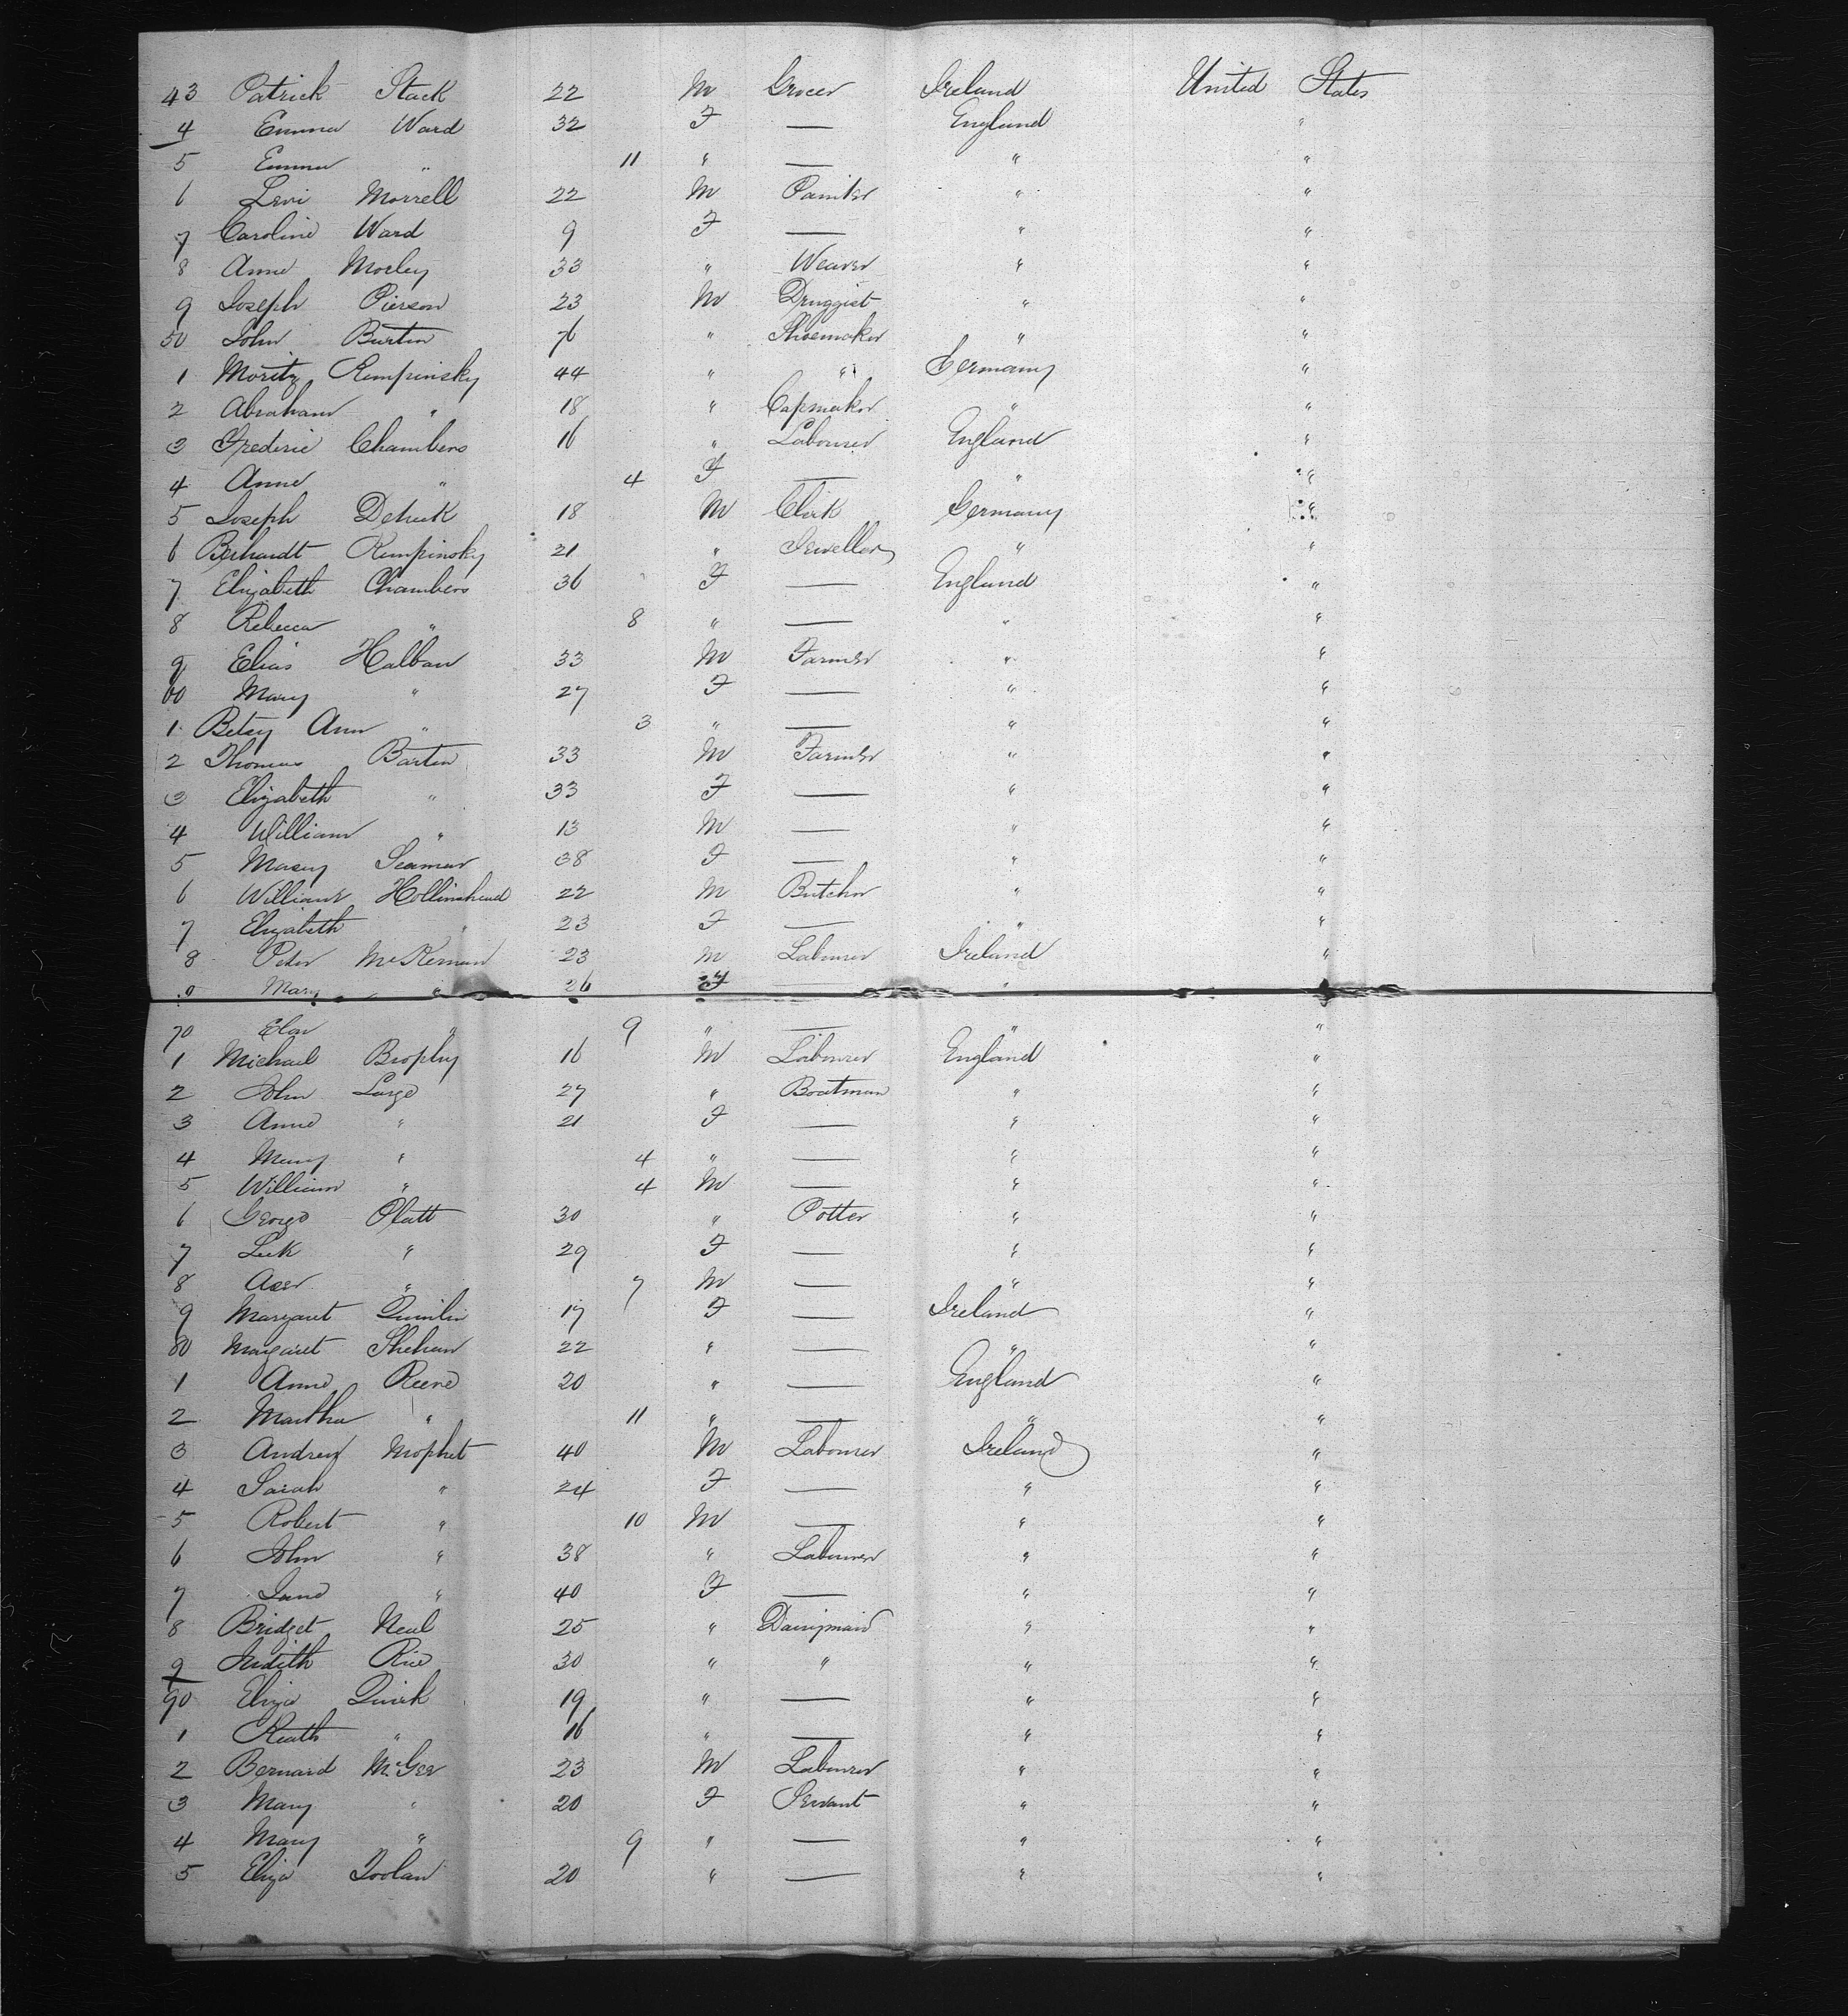 43 Patrick Stack 22 M Grocer Ireland United States
4 Emma Ward 32 F — England "
5 Emma " 11 " — " "
6 Levi Morrell 22 M Painter " "
7 Caroline Ward 9 F — " "
8 Anne Morley 33 " Weaver " "
9 Joseph Pierson 23 M Druggist " "
50 John Burton 76 " Shoemaker " "
1 Moritz Kempinsky 44 " " Germany "
2 Abraham " 18 " Capmaker " "
3 Frederic Chambers 16 " Labourer England "
4 Anne " 4 F — " "
5 Joseph 18 M Clerk Germany "
6 Berhardt Kempinsky 21 " Jeweller " "
7 Elizabeth Chambers 36 F — England "
8 Rebecca " 8 " — " "
9 Elias Halban 33 M Farmer " "
60 Mary " 27 F — " "
1 Betsy Ann " 3 " — " "
2 Thomas Barton 33 M Farmer " "
3 Elizabeth " 33 F — " "
4 William " 13 M — " "
5 Mary Seaman 38 F — " "
6 William Hollinshead 22 M Butcher " "
7 Elizabeth " 23 F — " "
8 Peter McKernan 23 M Labourer Ireland "
9 Mary " 26 F — " "
70 " 9 " — " "
1 Michael Brophy 16 M Labourer England "
2 John Large 27 " Boatman " "
3 Anne " 21 F — " "
4 Mary " 4 " — " "
5 William " 4 M — " "
6 George Platt 30 " Potter " "
7 " 29 F — " "
8 " 7 M — " "
9 Margaret Quinlin 17 F — Ireland "
80 Margaret Shehan 22 " — " "
1 Anne Reene 20 " — England "
2 Martha " 11 " — " "
3 Andrew Mophet 40 M Labourer Ireland "
4 Sarah " 24 F — " "
5 Robert " 10 M — " "
6 John " 38 " Labourer " "
7 Jane " 40 F — " "
8 Bridget Neal 25 " Dairymaid " "
9 Judith Rice 30 " " " "
90 Eliza Quirk 19 " — " "
1 " 16 " — " "
2 Bernard McGee 23 M Labourer " "
3 Mary " 20 F Servant " "
4 Mary " 9 " — " "
5 Eliza Toolan 20 " — " "